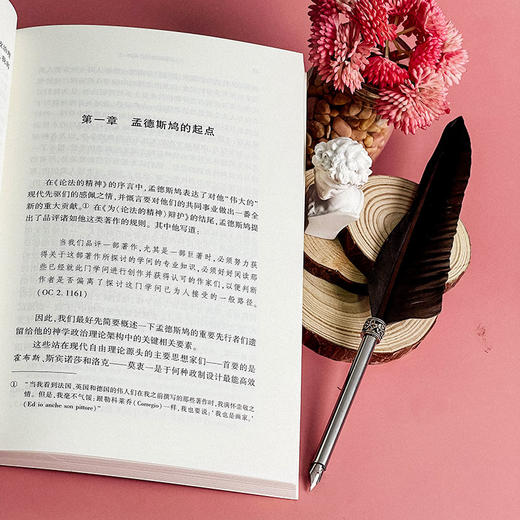 第一章 孟德斯鸠的起点
在《论法的精神》的序言中，孟德斯鸠表达了对他“伟大的”
现代先驱们的感佩之情，并慨言要对他们的共同事业做出一番全
新的重大贡献。① 在《为〈论法的精神〉辩护》的结尾，孟德斯鸠提
出了品评诸如他这类著作的规则。其中他写道：
当我们品评一部著作，尤其是一部巨著时，必须努力获
得关于这部著作所探讨的学问的专业知识，必须好好阅读那
些已经就此门学问进行创作并获得认可的作家们，以便判断
作者是否偏离了探讨这门学问已为人接受的一般路径。
(OC 2. 1161)
因此，我们最好先简要概述一下孟德斯鸠的重要先行者们遗
留给他的神学政治理论架构中的关键相关要素。
这些站在现代自由理论源头的主要思想家们——首要的是
霍布斯、斯宾诺莎和洛克——莫衷一是于何种政制设计最能高效
① “当我看到法国、英国和德国的伟人们在我之前撰写的那些著作时，我满怀崇敬之
情。但是，我毫不气馁：跟勒科莱乔（Correggio）一样，我也要说：‘我也是画家。’
(Ed io anche son pittore)”